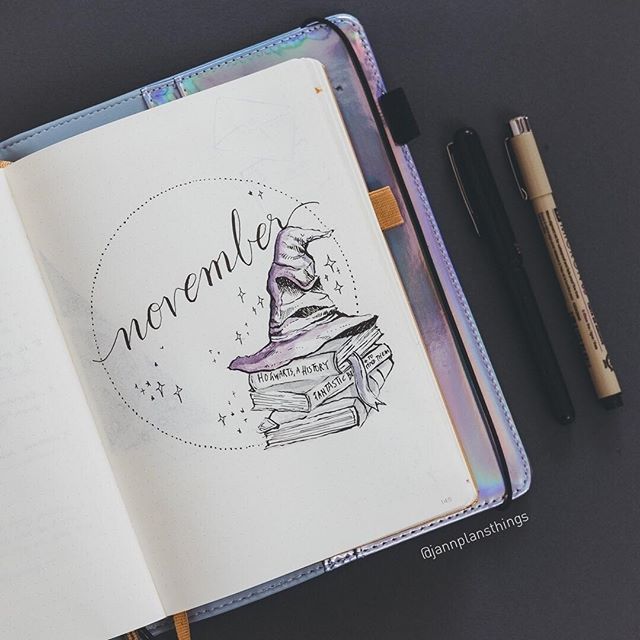 november
HOGWARTS, A HISTORY
FANTASTIC B
& TO
FIND THEM
145
@jannplansthings